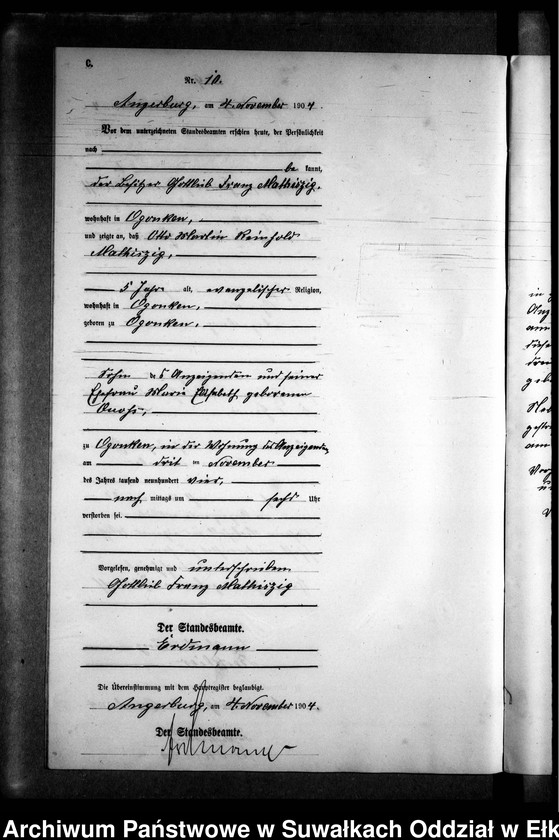 C.
Nr. 10.
Angerburg, am 4. November 1904.
Vor dem unterzeichneten Standesbeamten erschien heute, der Persönlichkeit
nach
be kannt,
der Besitzer Gottlieb Franz Mathiszig,
wohnhaft in Ogonken,
und zeigte an, daß Otto Martin Reinhold
Mathiszig,
5 Jahr alt, evangelischer Religion,
wohnhaft in Ogonken,
geboren zu Ogonken,
Sohn des Anzeigenden und seiner
Ehefrau Marie Elisabeth, geborenen
zu Ogonken, in der Wohnung des Anzeigenden,
am drit ten November
des Jahres tausend neunhundert vier,
nach mittags um sechs Uhr
verstorben sei.
Vorgelesen, genehmigt und unterschrieben
Gottlieb Franz Mathiszig
Der Standesbeamte.
Erdmann
Die Übereinstimmung mit dem Hauptregister beglaubigt.
Angerburg, am 4. November 1904.
Der Standesbeamte.
Erdmann
Archiwum Państwowe w Suwałkach Oddział w Ełk